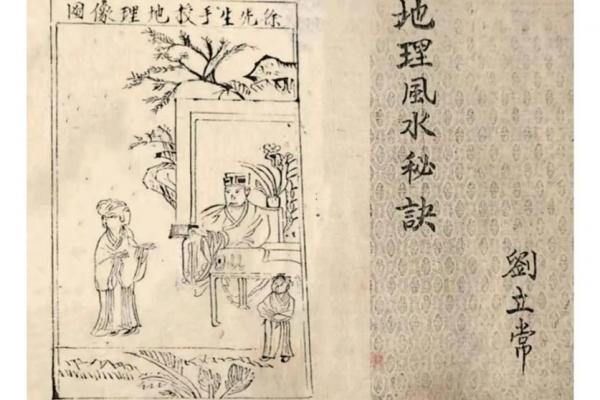 地理風水秘訣
劉立常
徐先生手授地理像圖